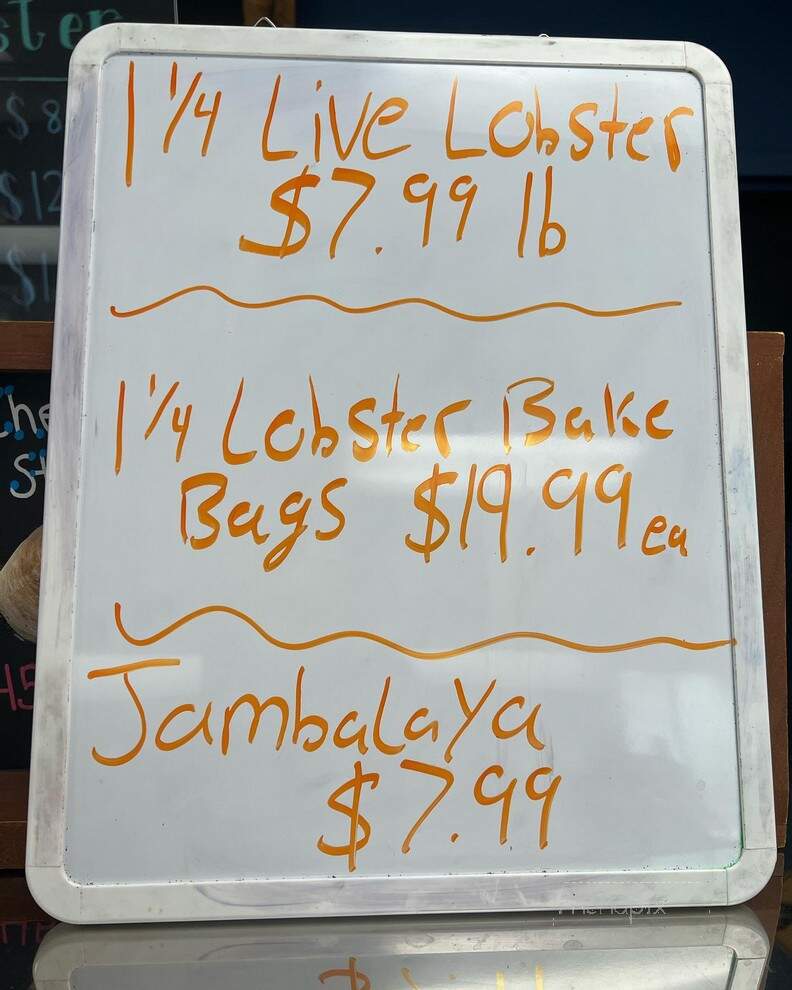 1 1/4 Live Lobster
$7.99 lb
1 1/4 Lobster Bake
Bags $19.99 ea
Jambalaya
$7.99
menupix